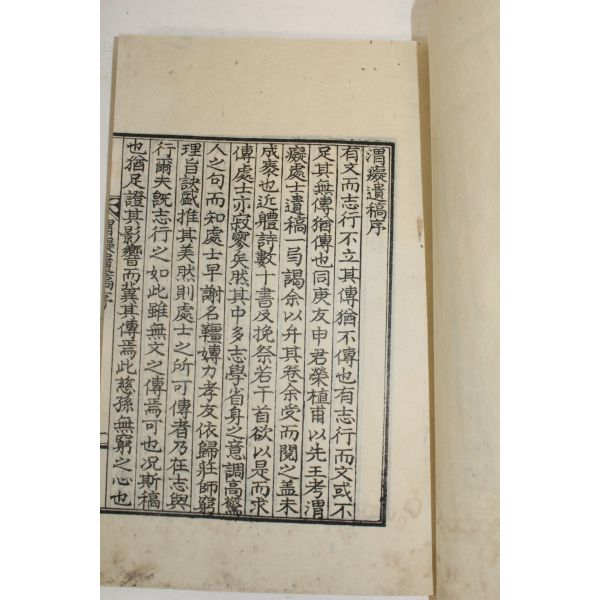 渭癡遺稿序
有文而志行不立其傳猶不傳也有志行而文或不
足其無傳猶傳也同庚友申君榮植甫以先王考渭
癡處士遺稿一局謁余以弁其卷余受而閱之盖未
成袠也近體詩數十書及挽祭若干首欲以是而求
傳處士亦寂寥矣然其中多志學省身之意調高驚
人之句而知處士早謝名韁嫥力孝友依歸莊師窮
理旨訣盛推其美然則處士之所可傳者乃在志與
行爾夫旣志行之如此雖無文之傳焉可也况斯稿
也猶足證其影響而冀其傳焉此慈孫無窮之心也
渭癡遺稿序